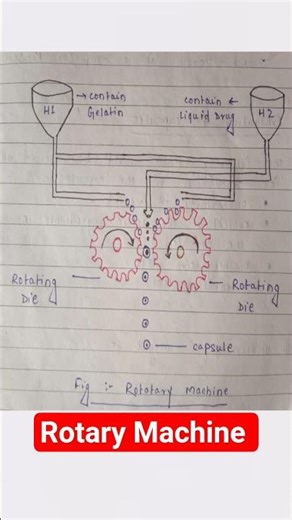 H1
→ contain
Gelatin
contain ←
Liquid Drug
H2
Rotating
Die
Rotating
Die
capsule
Fig :- Rototary Machine
Rotary Machine